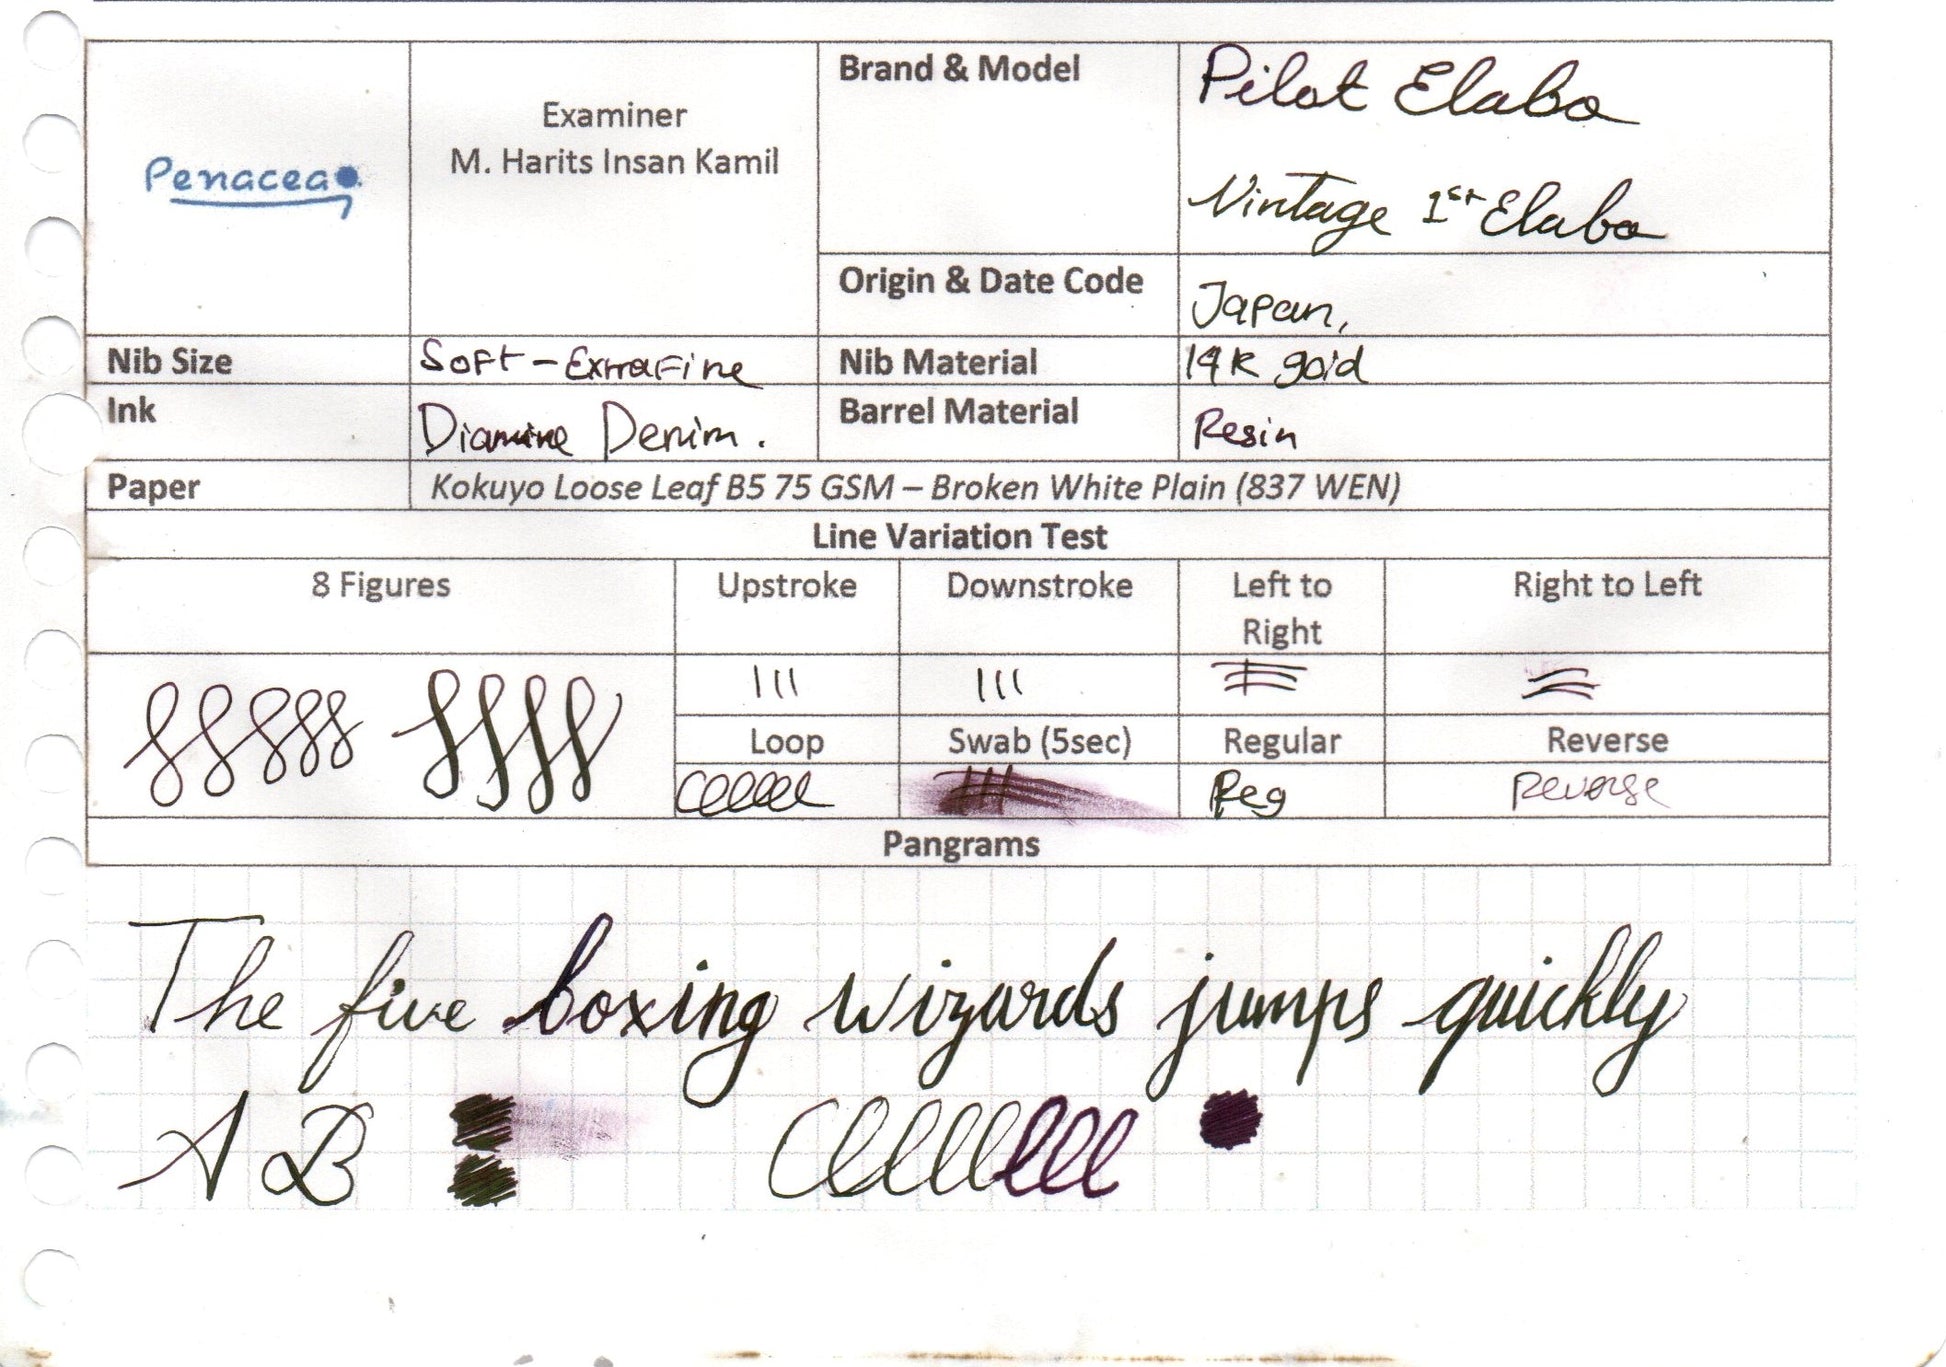 Penacea
Examiner
M. Harits Insan Kamil
Brand & Model
Pilot Elabo
Vintage 1st Elabo
Origin & Date Code
Japan,
Nib Size
Soft - Extrafine
Nib Material
14K gold
Ink
Diamine Denim.
Barrel Material
Resin
Paper
Kokuyo Loose Leaf B5 75 GSM – Broken White Plain (837 WEN)
Line Variation Test
8 Figures
Upstroke
Downstroke
Left to
Right
Right to Left
Loop
Swab (5sec)
Regular
Reverse
Reg
Reverse
Pangrams
The five boxing wizards jumps quickly
A B